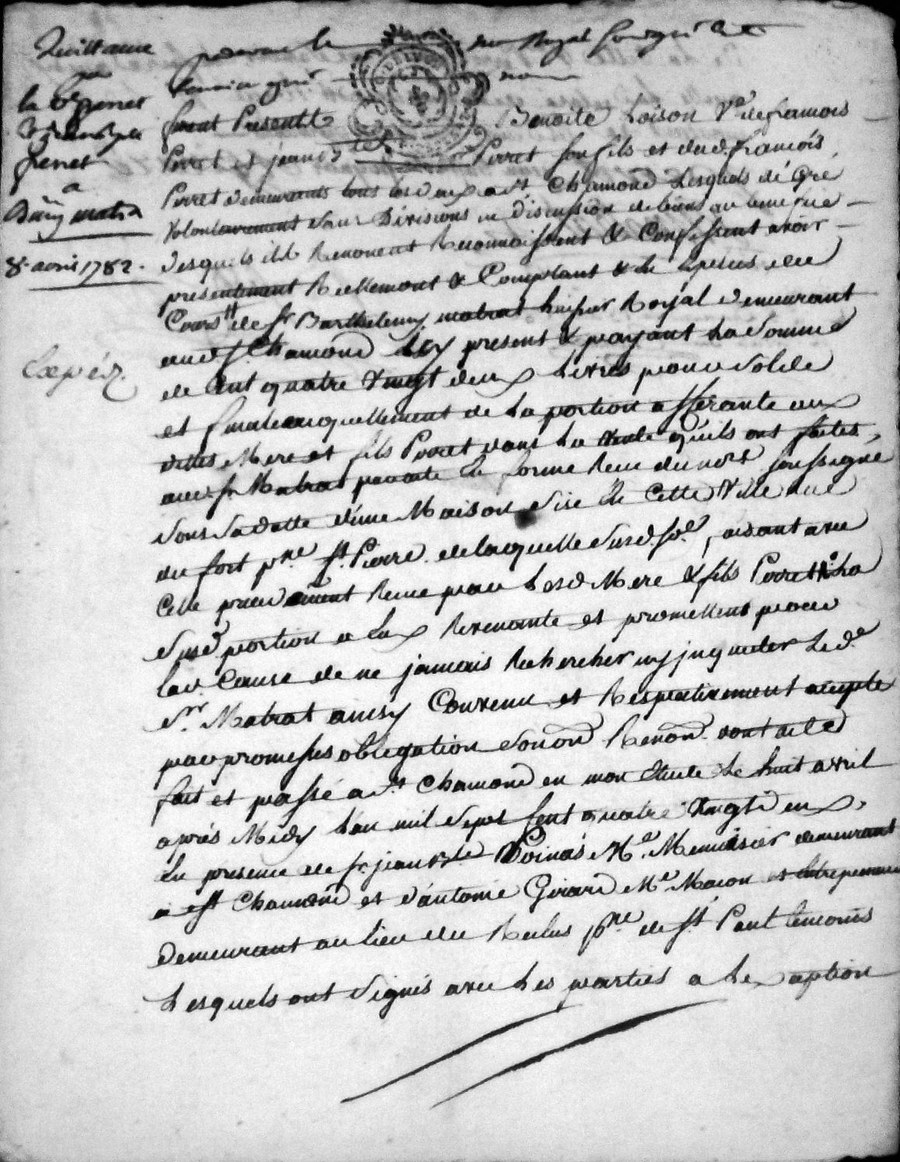 Quittance
par
la ve perret
perret
a
Bmy matrat
8e avril 1782.
Expédz.
pardevant le no.re Royal soussigné &
temoins
furent Presents Benoite Loison Ve de francois
Perret et jean Bte Perret son fils et dud. francois
Perret demeurants tous les deux a st Chamond Lesquels de Gré
volontairement sans Divisions ni discussion de biens au benefice
desquels ils Renoncent Reconnoissent & Confessent avoir
presentement Réellement & Comptant & le
Cours de sr Barthelemy matrat huissier Royal demeurant
aud. st Chamond Icy present & payant La somme
de Cent quatre vingt deux Livres pour solde
et de La portion afferante aux
dittes Mere et fils Perret dans La vente qu'ils ont faites
aud. sr Matrat pardevt Le no.re soussigné
sous sa datte d'une Maison sise En Cette ville rue
du fort p.sse st Pierre de laquelle susd.
Celle reçue pour Lesd. Mere & fils Perret
susd. portion a Eux Revenante et promettent pour
lad. Cause de ne jamais Rechercher ny jnquieter Led.
sr Matrat ainsy Convenu et Respectivement accepté
par promesses obligation Renon. dont acte
fait et passé a st Chamond en mon Etude Le huit avril
après Midy L'an mil sept Cent quatre vingt deux,
En presence de sr jean Bte Poinas Me Menuisier demeurant
a st Chamond et d'antoine Girard Me Macon et Entrepreneur
demeurant au lieu du p.sse de st Paul
Lesquels ont signés avec Les parties a L'exception